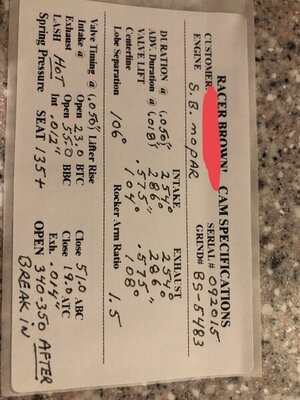 RACER BROWN! CAM SPECIFICATIONS
CUSTOMER SERIAL # 092015
ENGINE S.B. MOPAR GRIND# BS-5483
INTAKE EXHAUST
DURATION @ (.050") 254° 254°
ADV. Duration @ (.008) 286" 286
VALVE LIFT .575" .575"
Centerline 104° 108°
Lobe Separation 106° Rocker Arm Ratio 1.5
Valve Timing @ (.050") Lifter Rise
Intake @ Open 23.0 BTC Close 51.0 ABC
Exhaust Open 55.0 BBC Close 19.0 ATC
LASH HOT Int .012" Exh. .014"
Spring Pressure SEAT 135+ OPEN 340-350 AFTER
BREAK IN